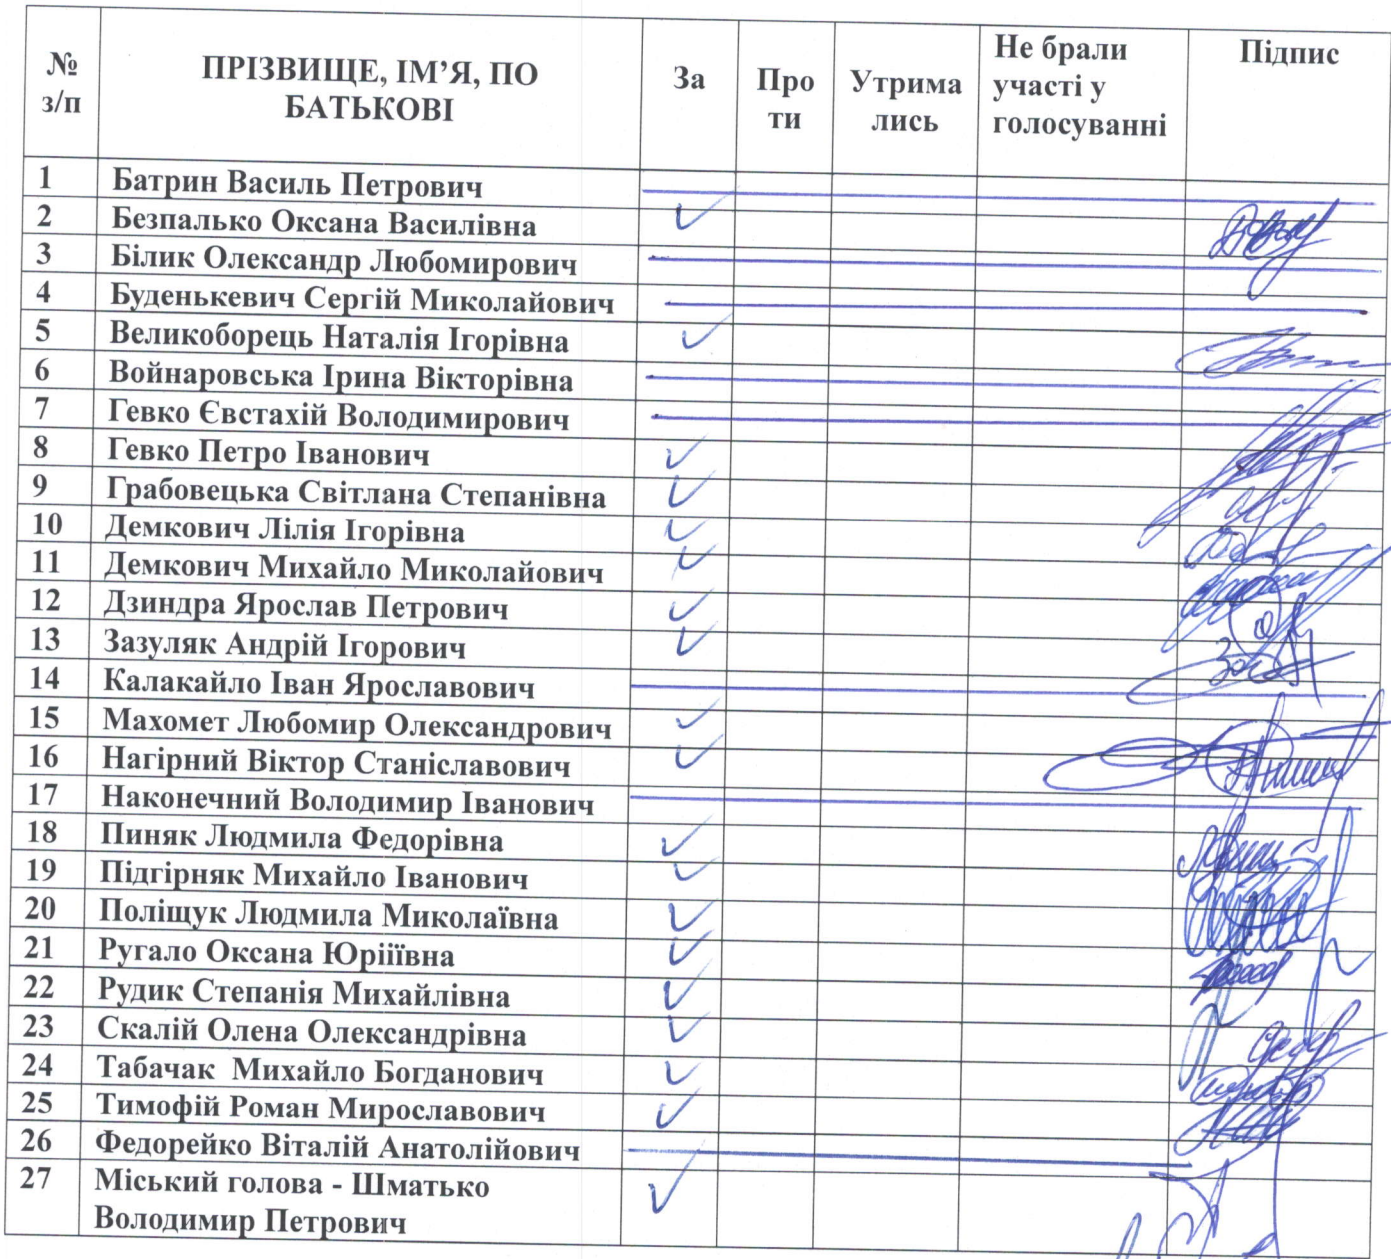 № з/п ПРІЗВИЩЕ, ІМ’Я, ПО БАТЬКОВІ За Про ти Утрима лись Не брали участі у голосуванні Підпис
1 Батрин Василь Петрович
2 Безпалько Оксана Василівна
3 Білик Олександр Любомирович
4 Буденькевич Сергій Миколайович
5 Великоборець Наталія Ігорівна
6 Войнаровська Ірина Вікторівна
7 Гевко Євстахій Володимирович
8 Гевко Петро Іванович
9 Грабовецька Світлана Степанівна
10 Демкович Лілія Ігорівна
11 Демкович Михайло Миколайович
12 Дзиндра Ярослав Петрович
13 Зазуляк Андрій Ігорович
14 Калакайло Іван Ярославович
15 Махомет Любомир Олександрович
16 Нагірний Віктор Станіславович
17 Наконечний Володимир Іванович
18 Пиняк Людмила Федорівна
19 Підгірняк Михайло Іванович
20 Поліщук Людмила Миколаївна
21 Ругало Оксана Юріїївна
22 Рудик Степанія Михайлівна
23 Скалій Олена Олександрівна
24 Табачак Михайло Богданович
25 Тимофій Роман Мирославович
26 Федорейко Віталій Анатолійович
27 Міський голова - Шматько
Володимир Петрович